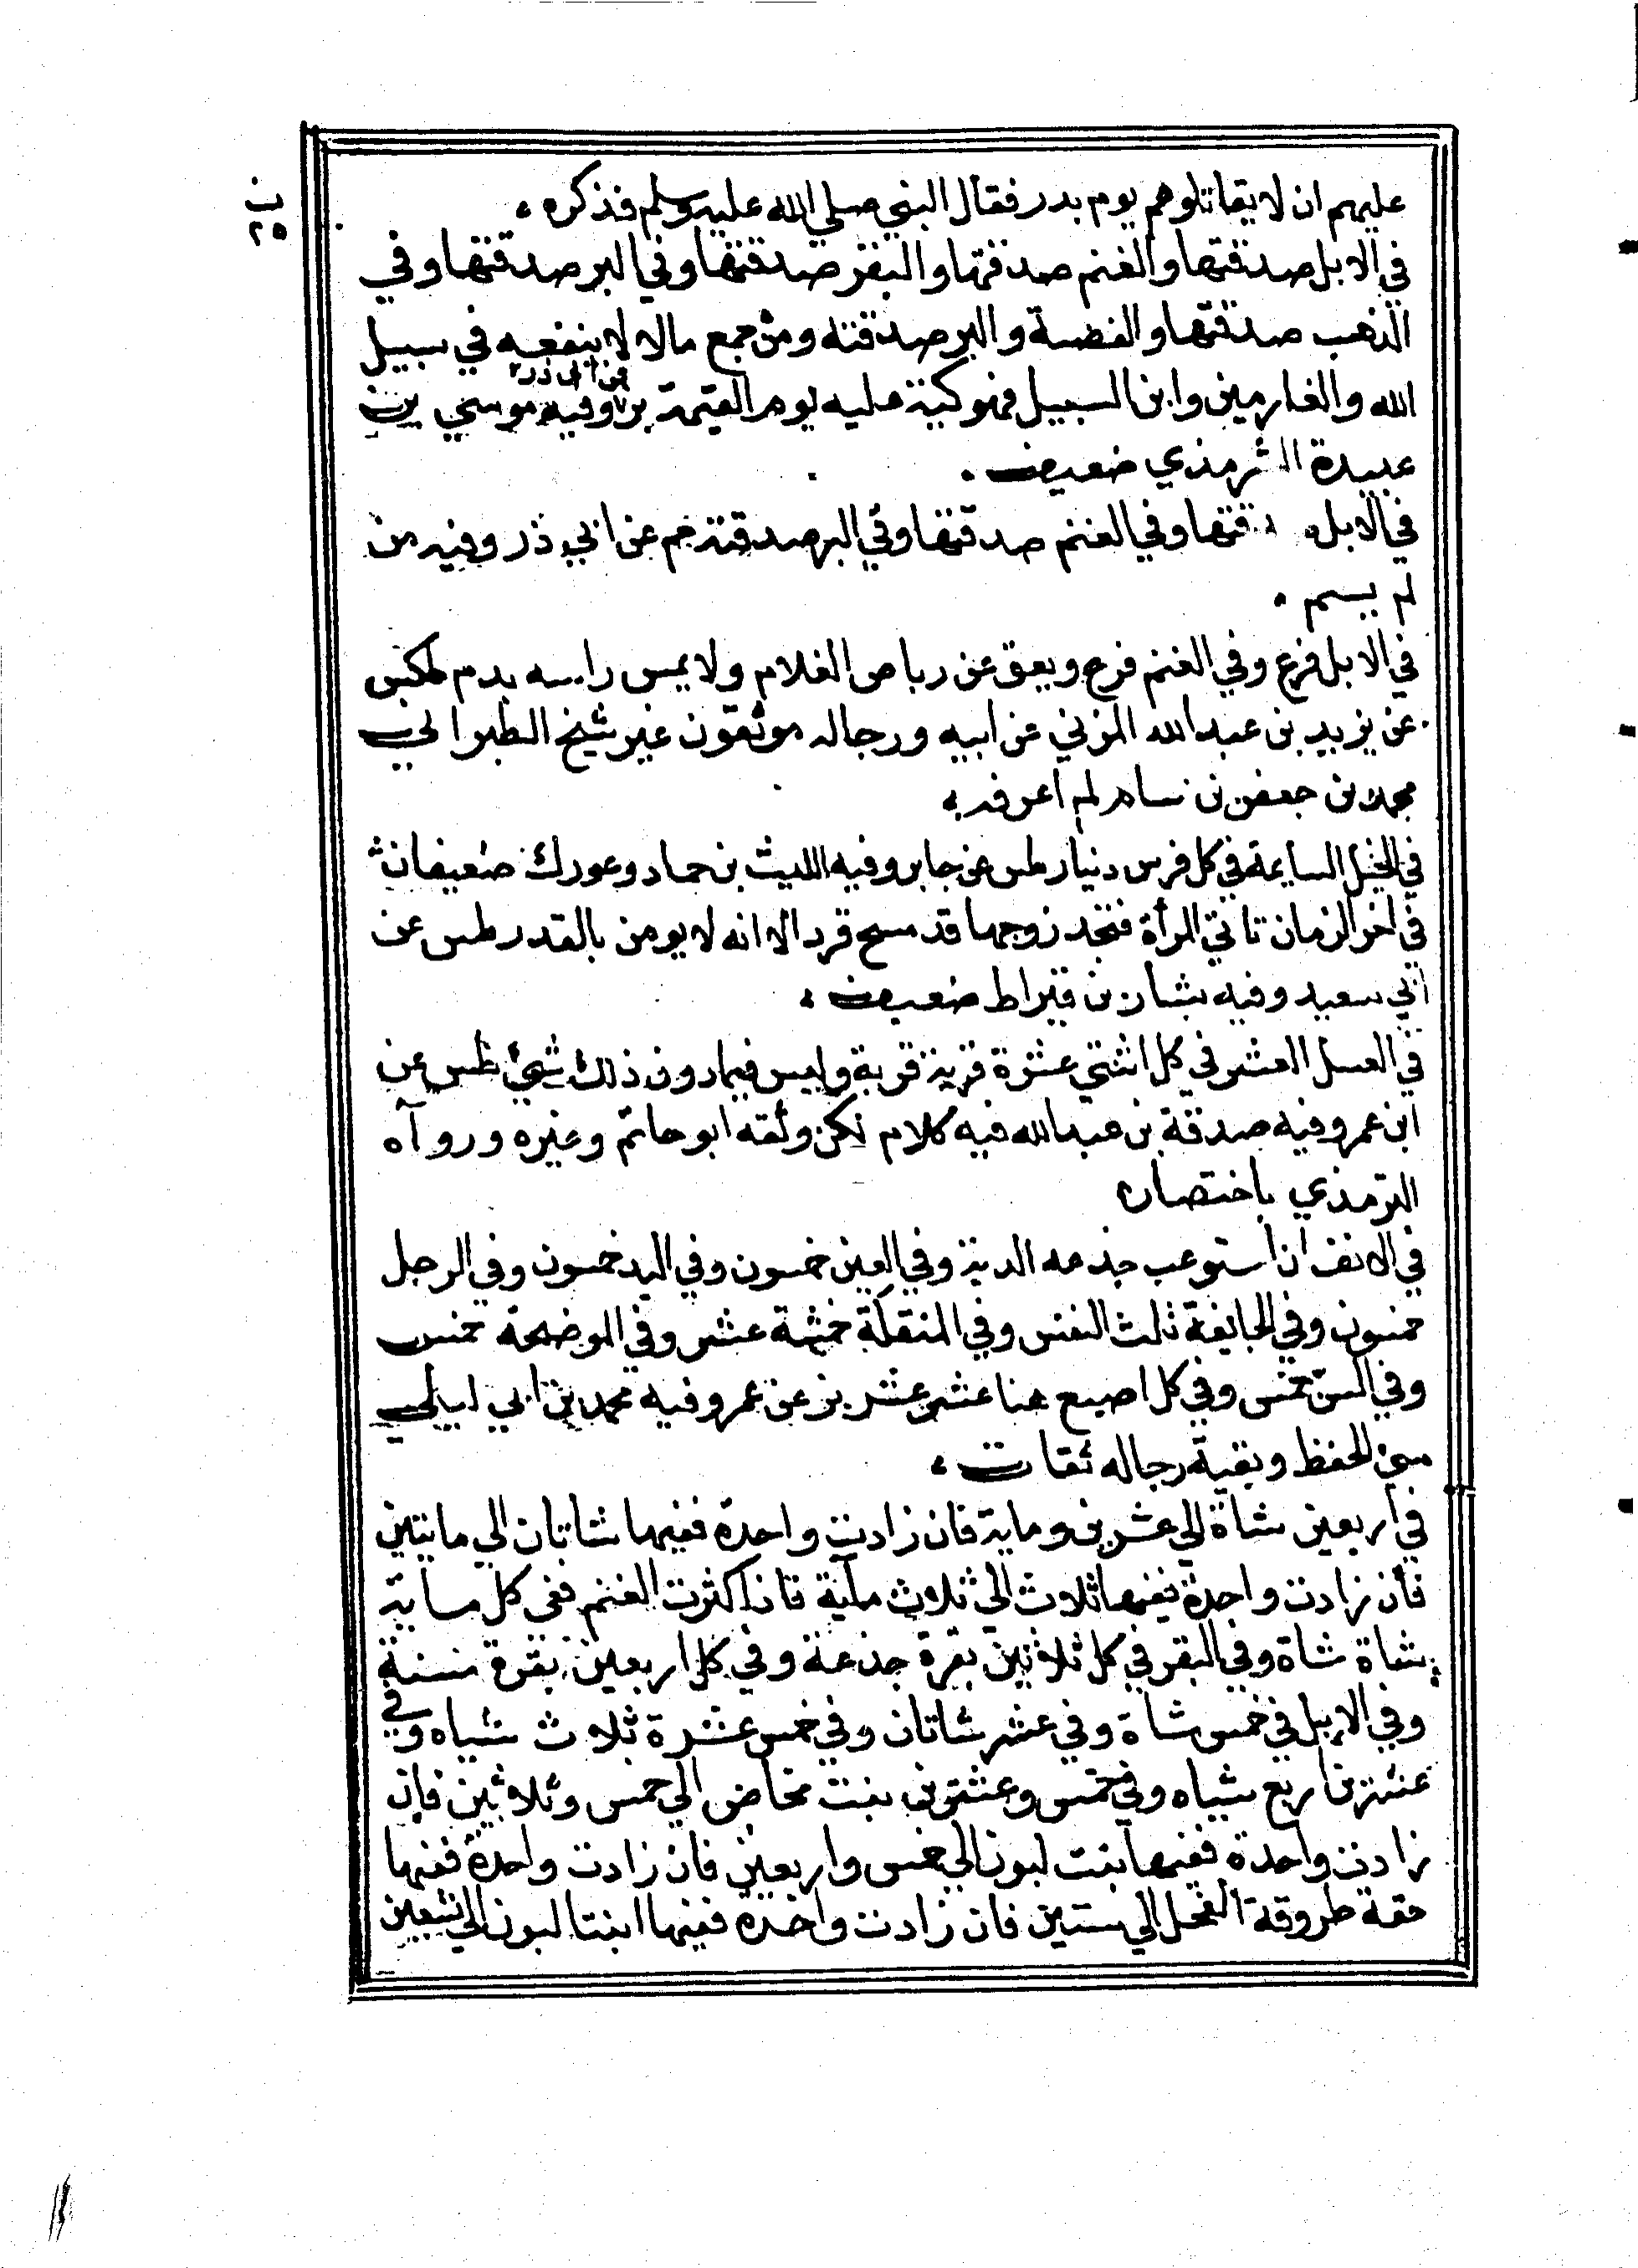 ب
٢٥
عليهم ان لا يقاتلوهم يوم بدر فقال النبي صلي الله عليه وسلم فذكره ،
في الابل صدقتها والغنم صدقتها والبقر صدقتها وفي البر صدقتها وفي
الذهب صدقتها والفضة والبر صدقته ومن جمع مالا لا ينفعه في سبيل
عن ابي ذر
الله والغارمين وابن السبيل فهو كية عليه يوم القيمة بز وفيه موسي بن
عبيدة الترمذي ضعيف .
في الابل قتها وفي الغنم صدقتها وفي البر صدقته حم عن ابي ذر وفيه من
لم يسم .
في الابل فرع وفي الغنم فرع ويعق عن رباص الغلام ولا يمس راسه بدم طكبس
عن يزيد بن عبد الله المزني عن ابيه ورجاله موثقون غير شيخ الطبراني
محمد بن جعفر بن سام لم اعرفه .
في الخيل السايمة في كل فرس دنيار طس عن جابر وفيه الليث بن حماد وعورك ضعيفان
في اخر الزمان تاتي المرأة فتجد زوجها قد مسح قردا لا انه لا يومن بالقدر طس عن
ابي سعيد وفيه بشار بن قيراط ضعيف ،
في العسل العشر في كل اثنتي عشرة قربة قربة وليس فيما دون ذلك شيئ طس عن
ابن عمر وفيه صدقة بن عبد الله فيه كلام لكن وثقه ابو حاتم وغيره ورواه
الترمذي باختصار
في الانف ان استوعب جدعه الدية وفي العين خمسون وفي اليد خمسون وفي الرجل
خمسون وفي الجايفة ثلث النفس وفي المنقلة خمسة عشر وفي الموضحة خمس
وفي السن خمس وفي كل اصبع هنا عشر عشر بز عن عمر وفيه محمد بن ابي ليلي
سيئ الحفظ وبقية رجاله ثقات ،
في اربعين شاة الي عشرين وماية فان زادت واحدة ففيها شاتان الي مايتين
فان زادت واحدة ففيها ثلاث الي ثلاث ماية فاذا كثرت الغنم ففي كل ماية
شاة شاة وفي البقر في كل ثلاثين بقرة جذعة وفي كل اربعين بقرة مسنة
وفي الابل في خمس شاة وفي عشر شاتان وفي خمس عشرة ثلاث شياه وفي
عشرين اربع شياه وفي خمس وعشرين بنت مخاض الي خمس وثلاثين فان
زادت واحدة ففيها بنت لبون الي خمس واربعين فان زادت واحدة ففيها
حقة طروقة الفحل الي ستين فان زادت واحدة ففيها ابنتا لبون الي تسعين